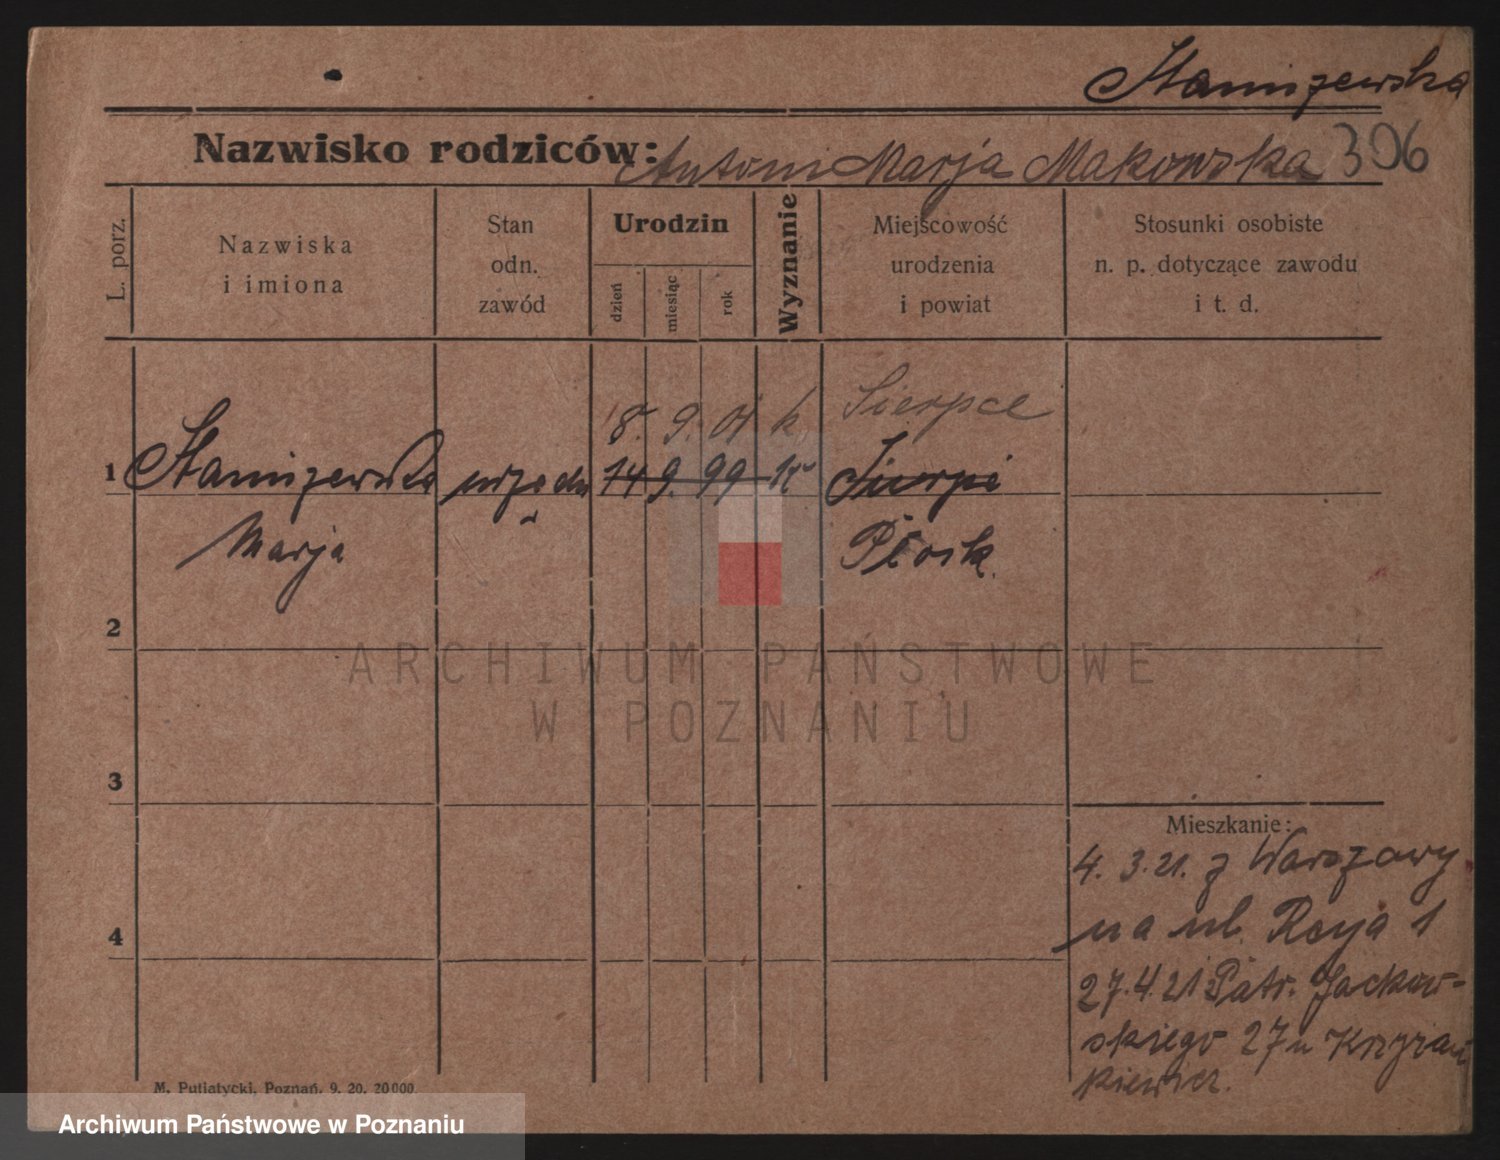 Staniszewska
Nazwisko rodziców: Antoni Marja Makowska 306
L. porz.
Nazwiska
i imiona
Stan
odn.
zawód
Urodzin
dzień
miesiąc
rok
Wyznanie
Miejscowość
urodzenia
i powiat
Stosunki osobiste
n. p. dotyczące zawodu
i t. d.
8. 9. 01 k Sierpce
1 Staniszewska 14 9. 99 k Sierpc
Marja Płock.
2
3
4
Mieszkanie:
4. 3. 21. z Warszawy
na ul. Reja 1
27. 4. 21 Patr. Jackow-
skiego 27 u Krzyżan
kiewicz.
M. Putiatycki, Poznań. 9. 20. 20000.
ARCHIWUM PAŃSTWOWE
W POZNANIU
Archiwum Państwowe w Poznaniu